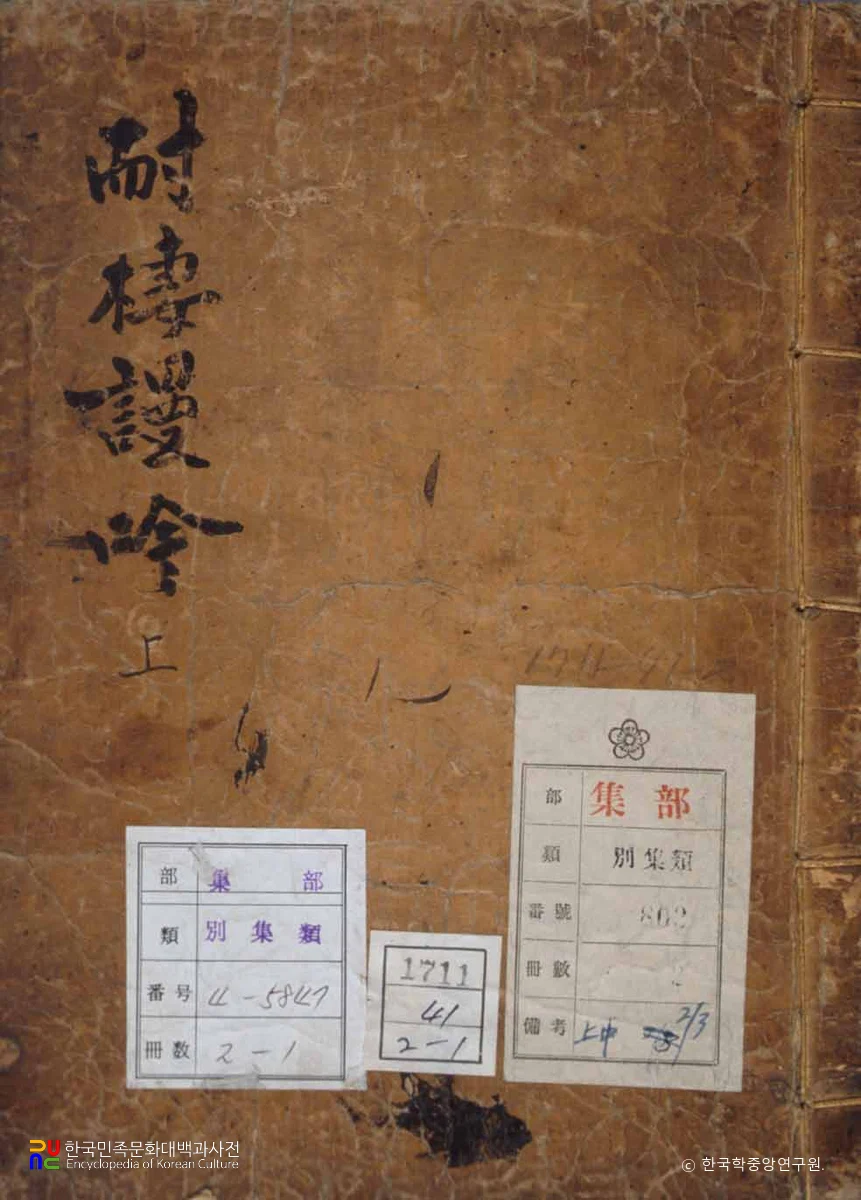 耐棲謾吟
上
部 集部
類 別集類
番號 802
冊數
備考 上中 2/3
部 集部
類 別集類
番号 4-5847
冊数 2-1
1711
41
2-1
한국민족문화대백과사전
Encyclopedia of Korean Culture
ⓒ 한국학중앙연구원.